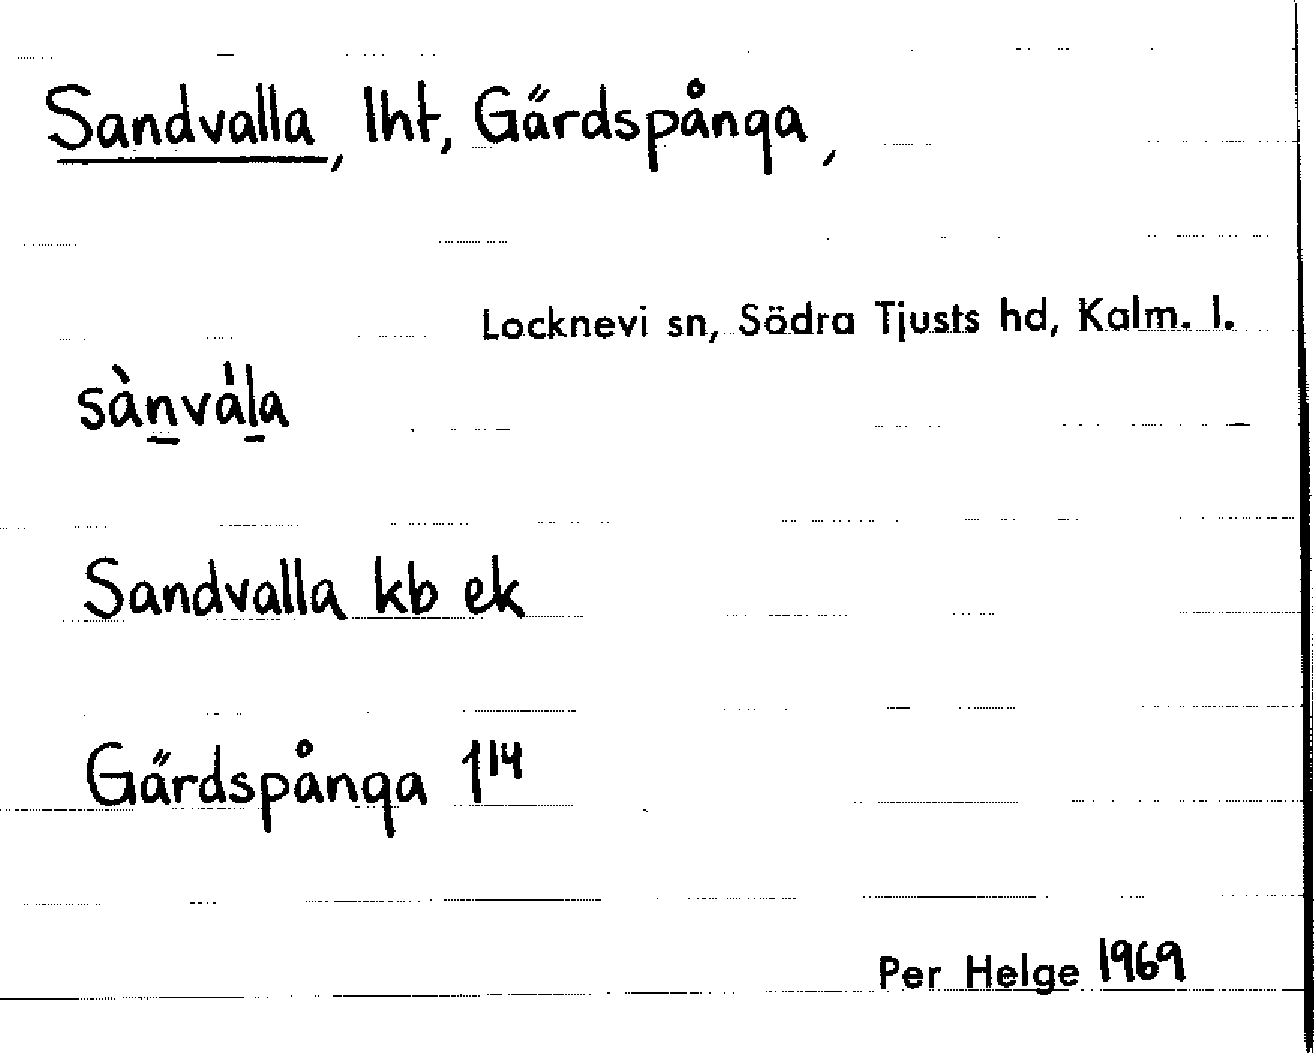 Sandvalla, lht, Gärdspånga,
Locknevi sn, Södra Tjusts hd, Kalm. l.
sànvàla
Sandvalla kb ek
Gärdspånga 1¹⁴
Per Helge 1969